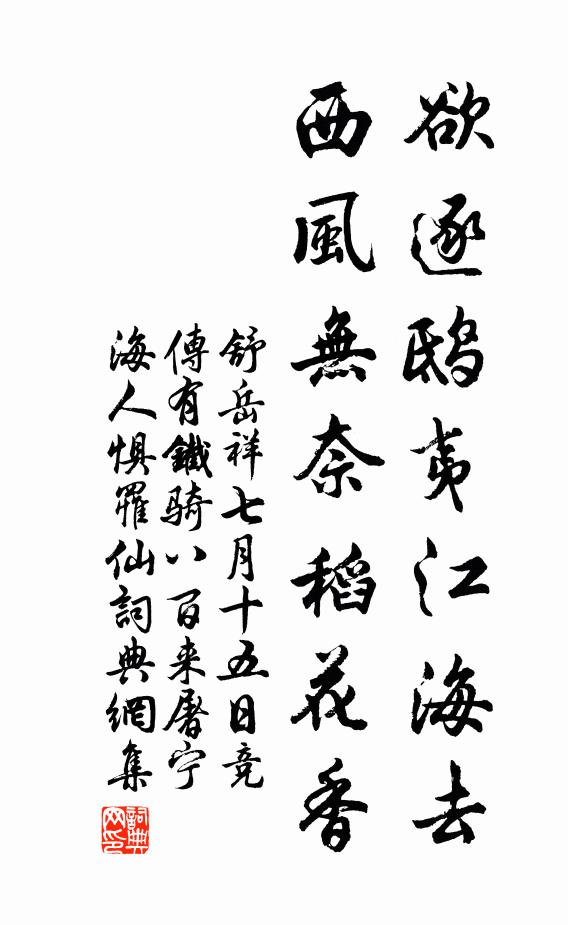 欲逐鸱夷江海去
西風無奈稻花香
舒岳祥七月十五日竞
傳有鐵骑八百来屠宁
海人惧罹仙詞典網集
詞典
网印